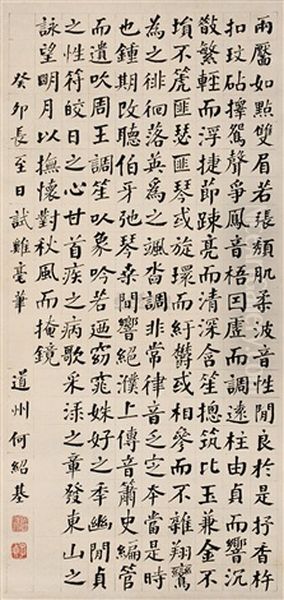 兩靨如點雙眉若張頹肌柔波音性閒良於是抒香杵
扣玟砧擇鴛聲爭鳳音梧因虛而調遠柱由貞而響沉
散繁輕而浮捷節踈亮而清深含笙摠筑比玉兼金不
塤不篪匪瑟匪琴或旋環而紆欝或相參而不雜翔鴻
為之徘徊落英為之颯沓調非常律音乏定本當是時
也鍾期改聽伯牙弛琴桑閒響絕濮上傳音簫史編管
而遺吹周王調笙以象吟若迺窈窕姝好之季幽閒貞
之性符皎日之心甘首疾之病歌采淥之章發東山之
詠望明月以撫懷對秋風而掩鏡
癸卯長至日試雞毫筆
道州何紹基